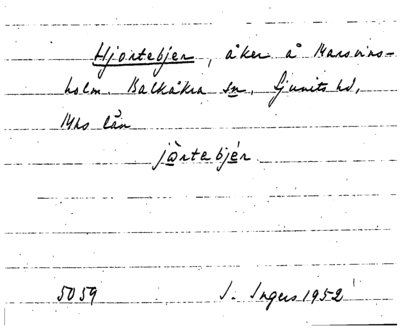 Hjortebjer, åker å Marsvins-
holm. Balkåkra sn, Ljunits hd,
Mhs län
jàrtebjér.
5059 I. Ingers 1952